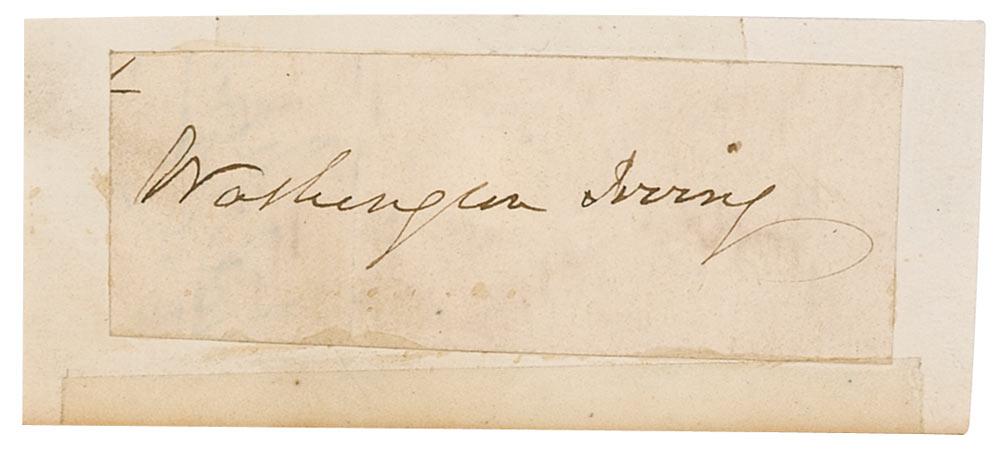 Washington Irving